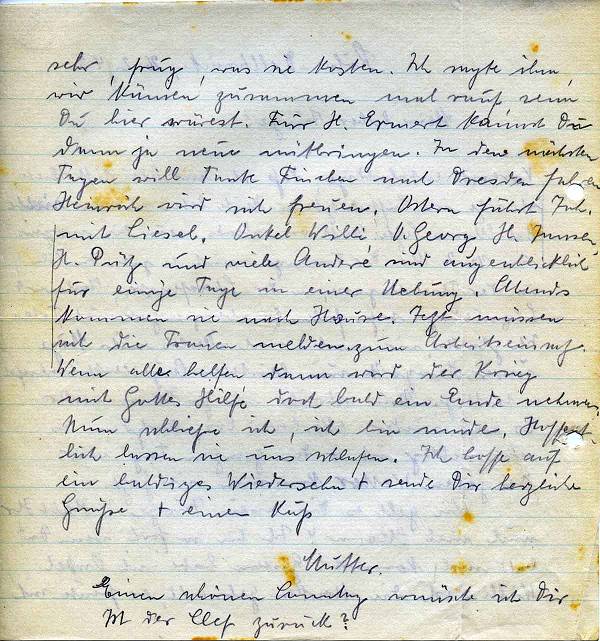 sehr, frug, was sie kosten. Ich sagte ihm,
wir kämen zusammen mal rauf, wenn
Du hier wärest. Für H. Ermert kannst Du
dann ja neue mitbringen. In den nächsten
Tagen will Tante Finchen nach Dresden fahren
Heinrich wird sich freuen. Ostern fährt Joh.
mit Liesel. Onkel Willi, O. Georg, H. Jansen,
H. Pütz und viele Andere sind augenblicklich
für einige Tage in einer Uebung. Abends
kommen sie nach Hause. Jetzt müssen
sich die Frauen melden zum Arbeitseinsatz.
Wenn alle helfen dann wird der Krieg
mit Gottes Hilfe doch bald ein Ende nehmen.
Nun schließe ich, ich bin müde. Hoffent-
lich lassen sie uns schlafen. Ich hoffe auf
ein baldiges Wiedersehn + sende Dir herzliche
Grüße + einen Kuß
Mutter.
Einen schönen Sonntag wünsche ich Dir
Ist der Chef zurück?